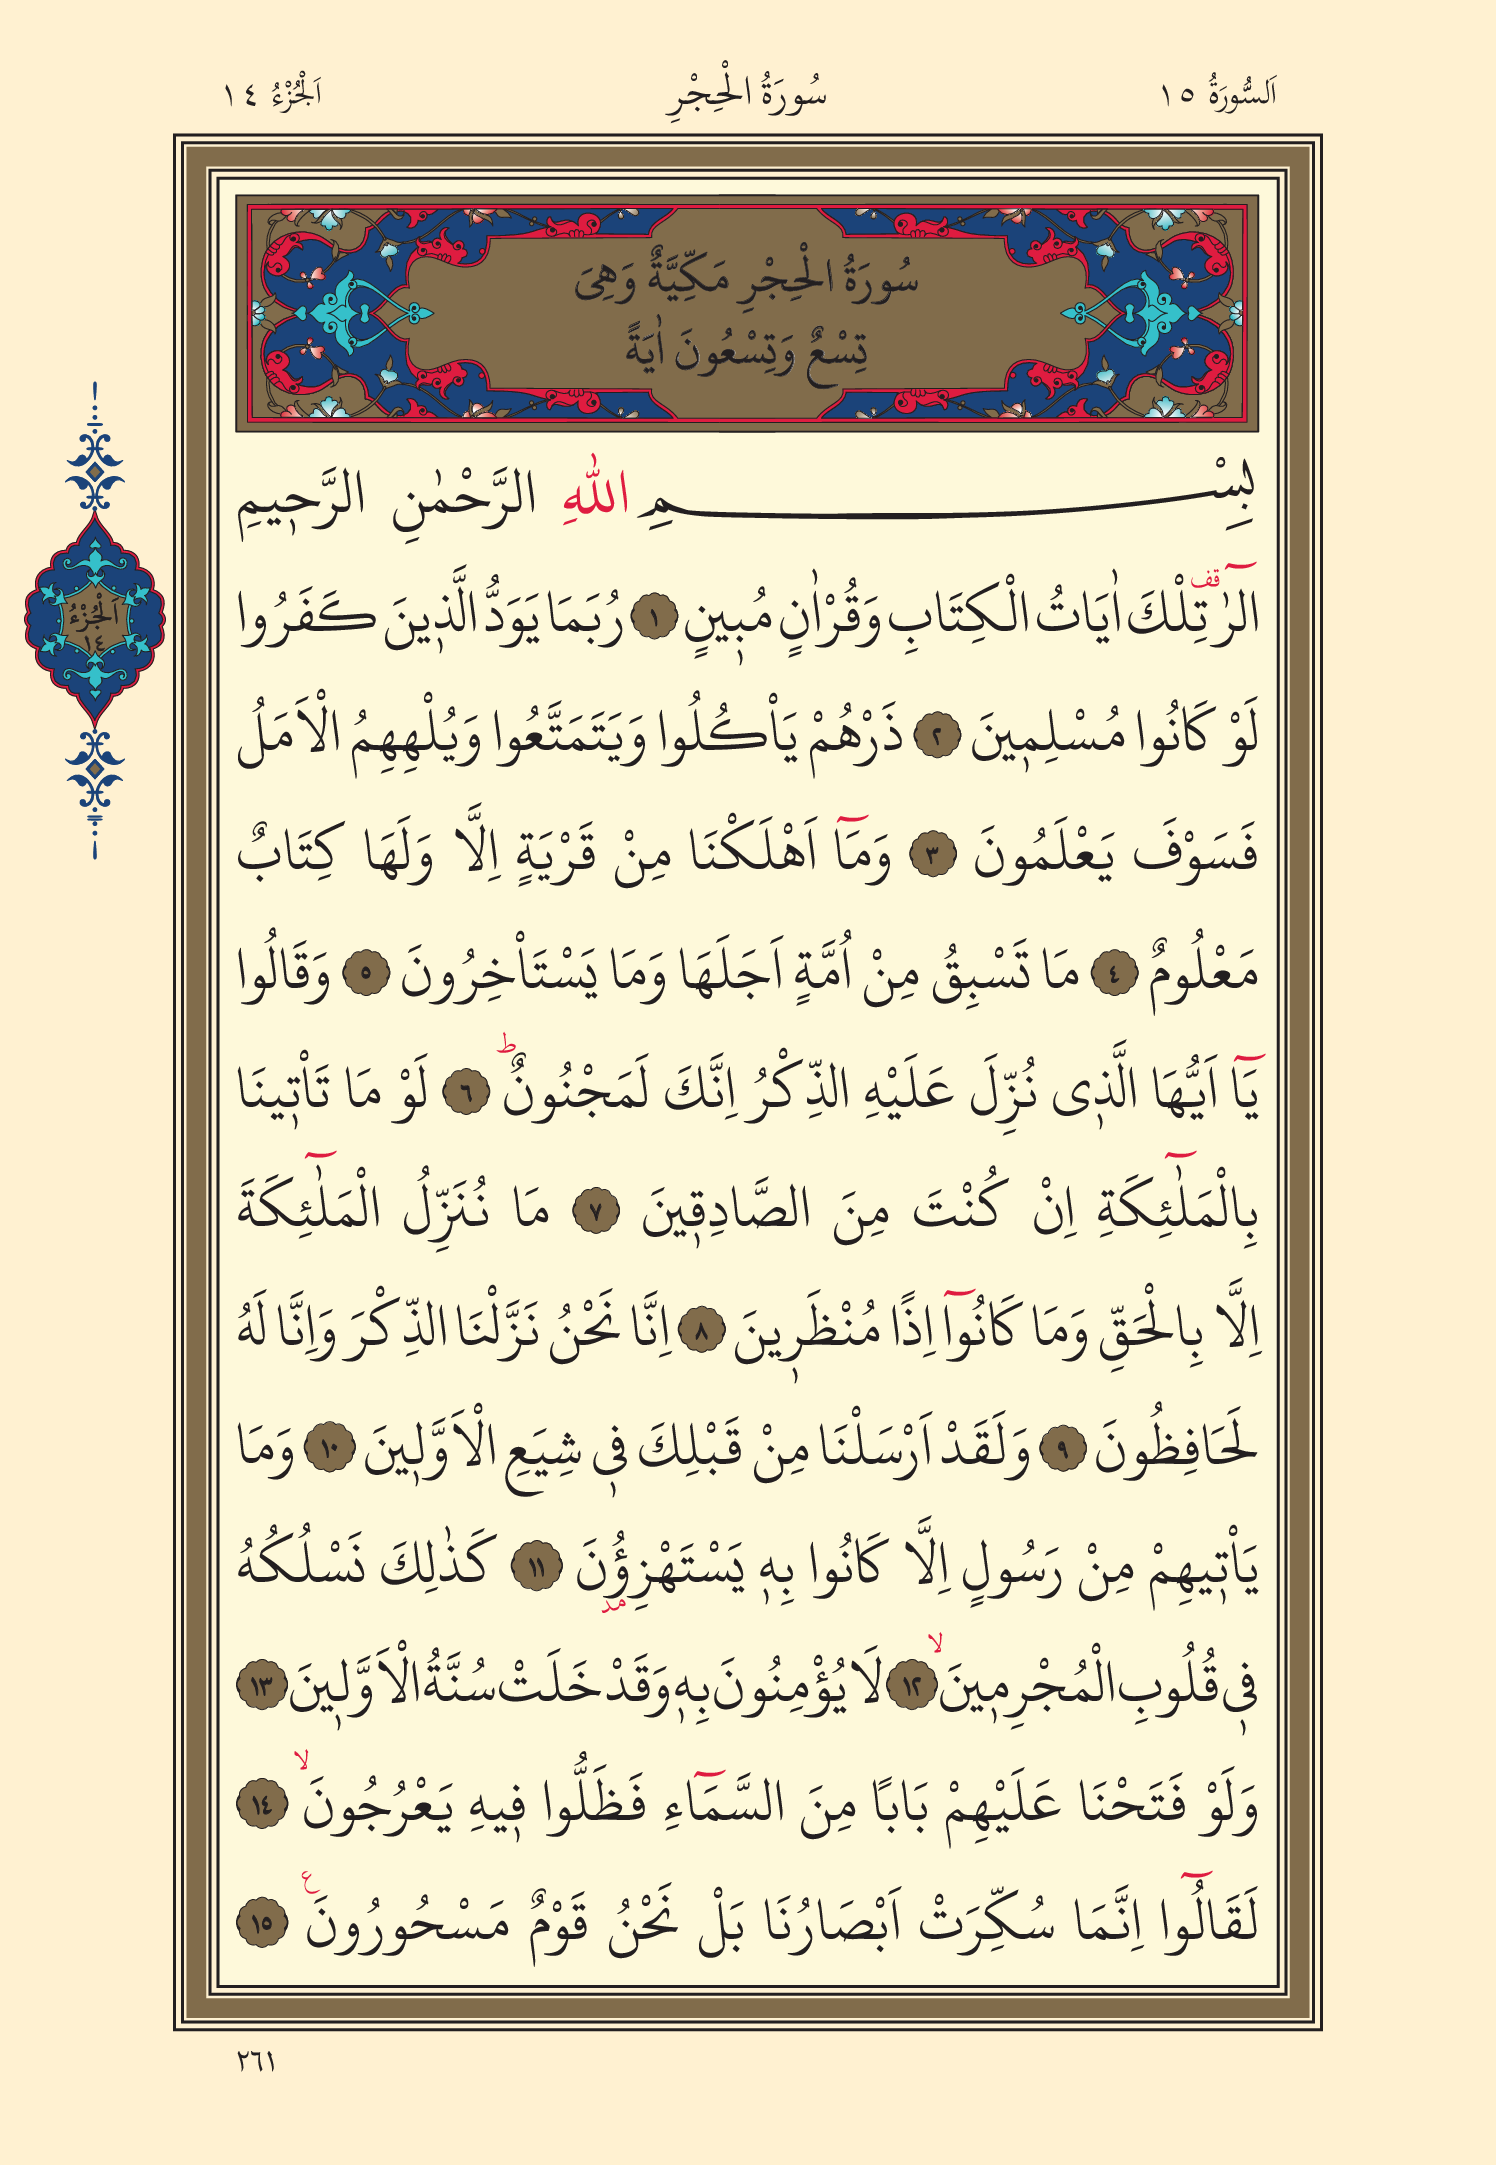 اَلسُّورَةُ ١٥ سُورَةُ الْحِجْرِ اَلْجُزْءُ ١٤
سُورَةُ الْحِجْرِ مَكِّيَّةٌ وَهِىَ
تِسْعٌ وَتِسْعُونَ اٰيَةً
اَلْجُزْءُ
١٤
بِسْمِ اللّٰهِ الرَّحْمٰنِ الرَّح۪يمِ
الٓرٰ۠ تِلْكَ اٰيَاتُ الْكِتَابِ وَقُرْاٰنٍ مُب۪ينٍ ﴿١﴾ رُبَمَا يَوَدُّ الَّذ۪ينَ كَفَرُوا
لَوْ كَانُوا مُسْلِم۪ينَ ﴿٢﴾ ذَرْهُمْ يَأْكُلُوا وَيَتَمَتَّعُوا وَيُلْهِهِمُ الْاَمَلُ
فَسَوْفَ يَعْلَمُونَ ﴿٣﴾ وَمَٓا اَهْلَكْنَا مِنْ قَرْيَةٍ اِلَّا وَلَهَا كِتَابٌ
مَعْلُومٌ ﴿٤﴾ مَا تَسْبِقُ مِنْ اُمَّةٍ اَجَلَهَا وَمَا يَسْتَأْخِرُونَ ﴿٥﴾ وَقَالُوا
يَٓا اَيُّهَا الَّذ۪ى نُزِّلَ عَلَيْهِ الذِّكْرُ اِنَّكَ لَمَجْنُونٌۜ ﴿٦﴾ لَوْ مَا تَأْت۪ينَا
بِالْمَلٰٓئِكَةِ اِنْ كُنْتَ مِنَ الصَّادِق۪ينَ ﴿٧﴾ مَا نُنَزِّلُ الْمَلٰٓئِكَةَ
اِلَّا بِالْحَقِّ وَمَا كَانُٓوا اِذًا مُنْظَر۪ينَ ﴿٨﴾ اِنَّا نَحْنُ نَزَّلْنَا الذِّكْرَ وَاِنَّا لَهُ
لَحَافِظُونَ ﴿٩﴾ وَلَقَدْ اَرْسَلْنَا مِنْ قَبْلِكَ ف۪ى شِيَعِ الْاَوَّل۪ينَ ﴿١٠﴾ وَمَا
يَأْت۪يهِمْ مِنْ رَسُولٍ اِلَّا كَانُوا بِه۪ يَسْتَهْزِؤُ۫نَ ﴿١١﴾ كَذٰلِكَ نَسْلُكُهُ
ف۪ى قُلُوبِ الْمُجْرِم۪ينَۙ ﴿١٢﴾ لَا يُؤْمِنُونَ بِه۪ وَقَدْ خَلَتْ سُنَّةُ الْاَوَّل۪ينَ ﴿١٣﴾
وَلَوْ فَتَحْنَا عَلَيْهِمْ بَابًا مِنَ السَّمَٓاءِ فَظَلُّوا ف۪يهِ يَعْرُجُونَۙ ﴿١٤﴾
لَقَالُٓوا اِنَّمَا سُكِّرَتْ اَبْصَارُنَا بَلْ نَحْنُ قَوْمٌ مَسْحُورُونَ۟ ﴿١٥﴾
٢٦١